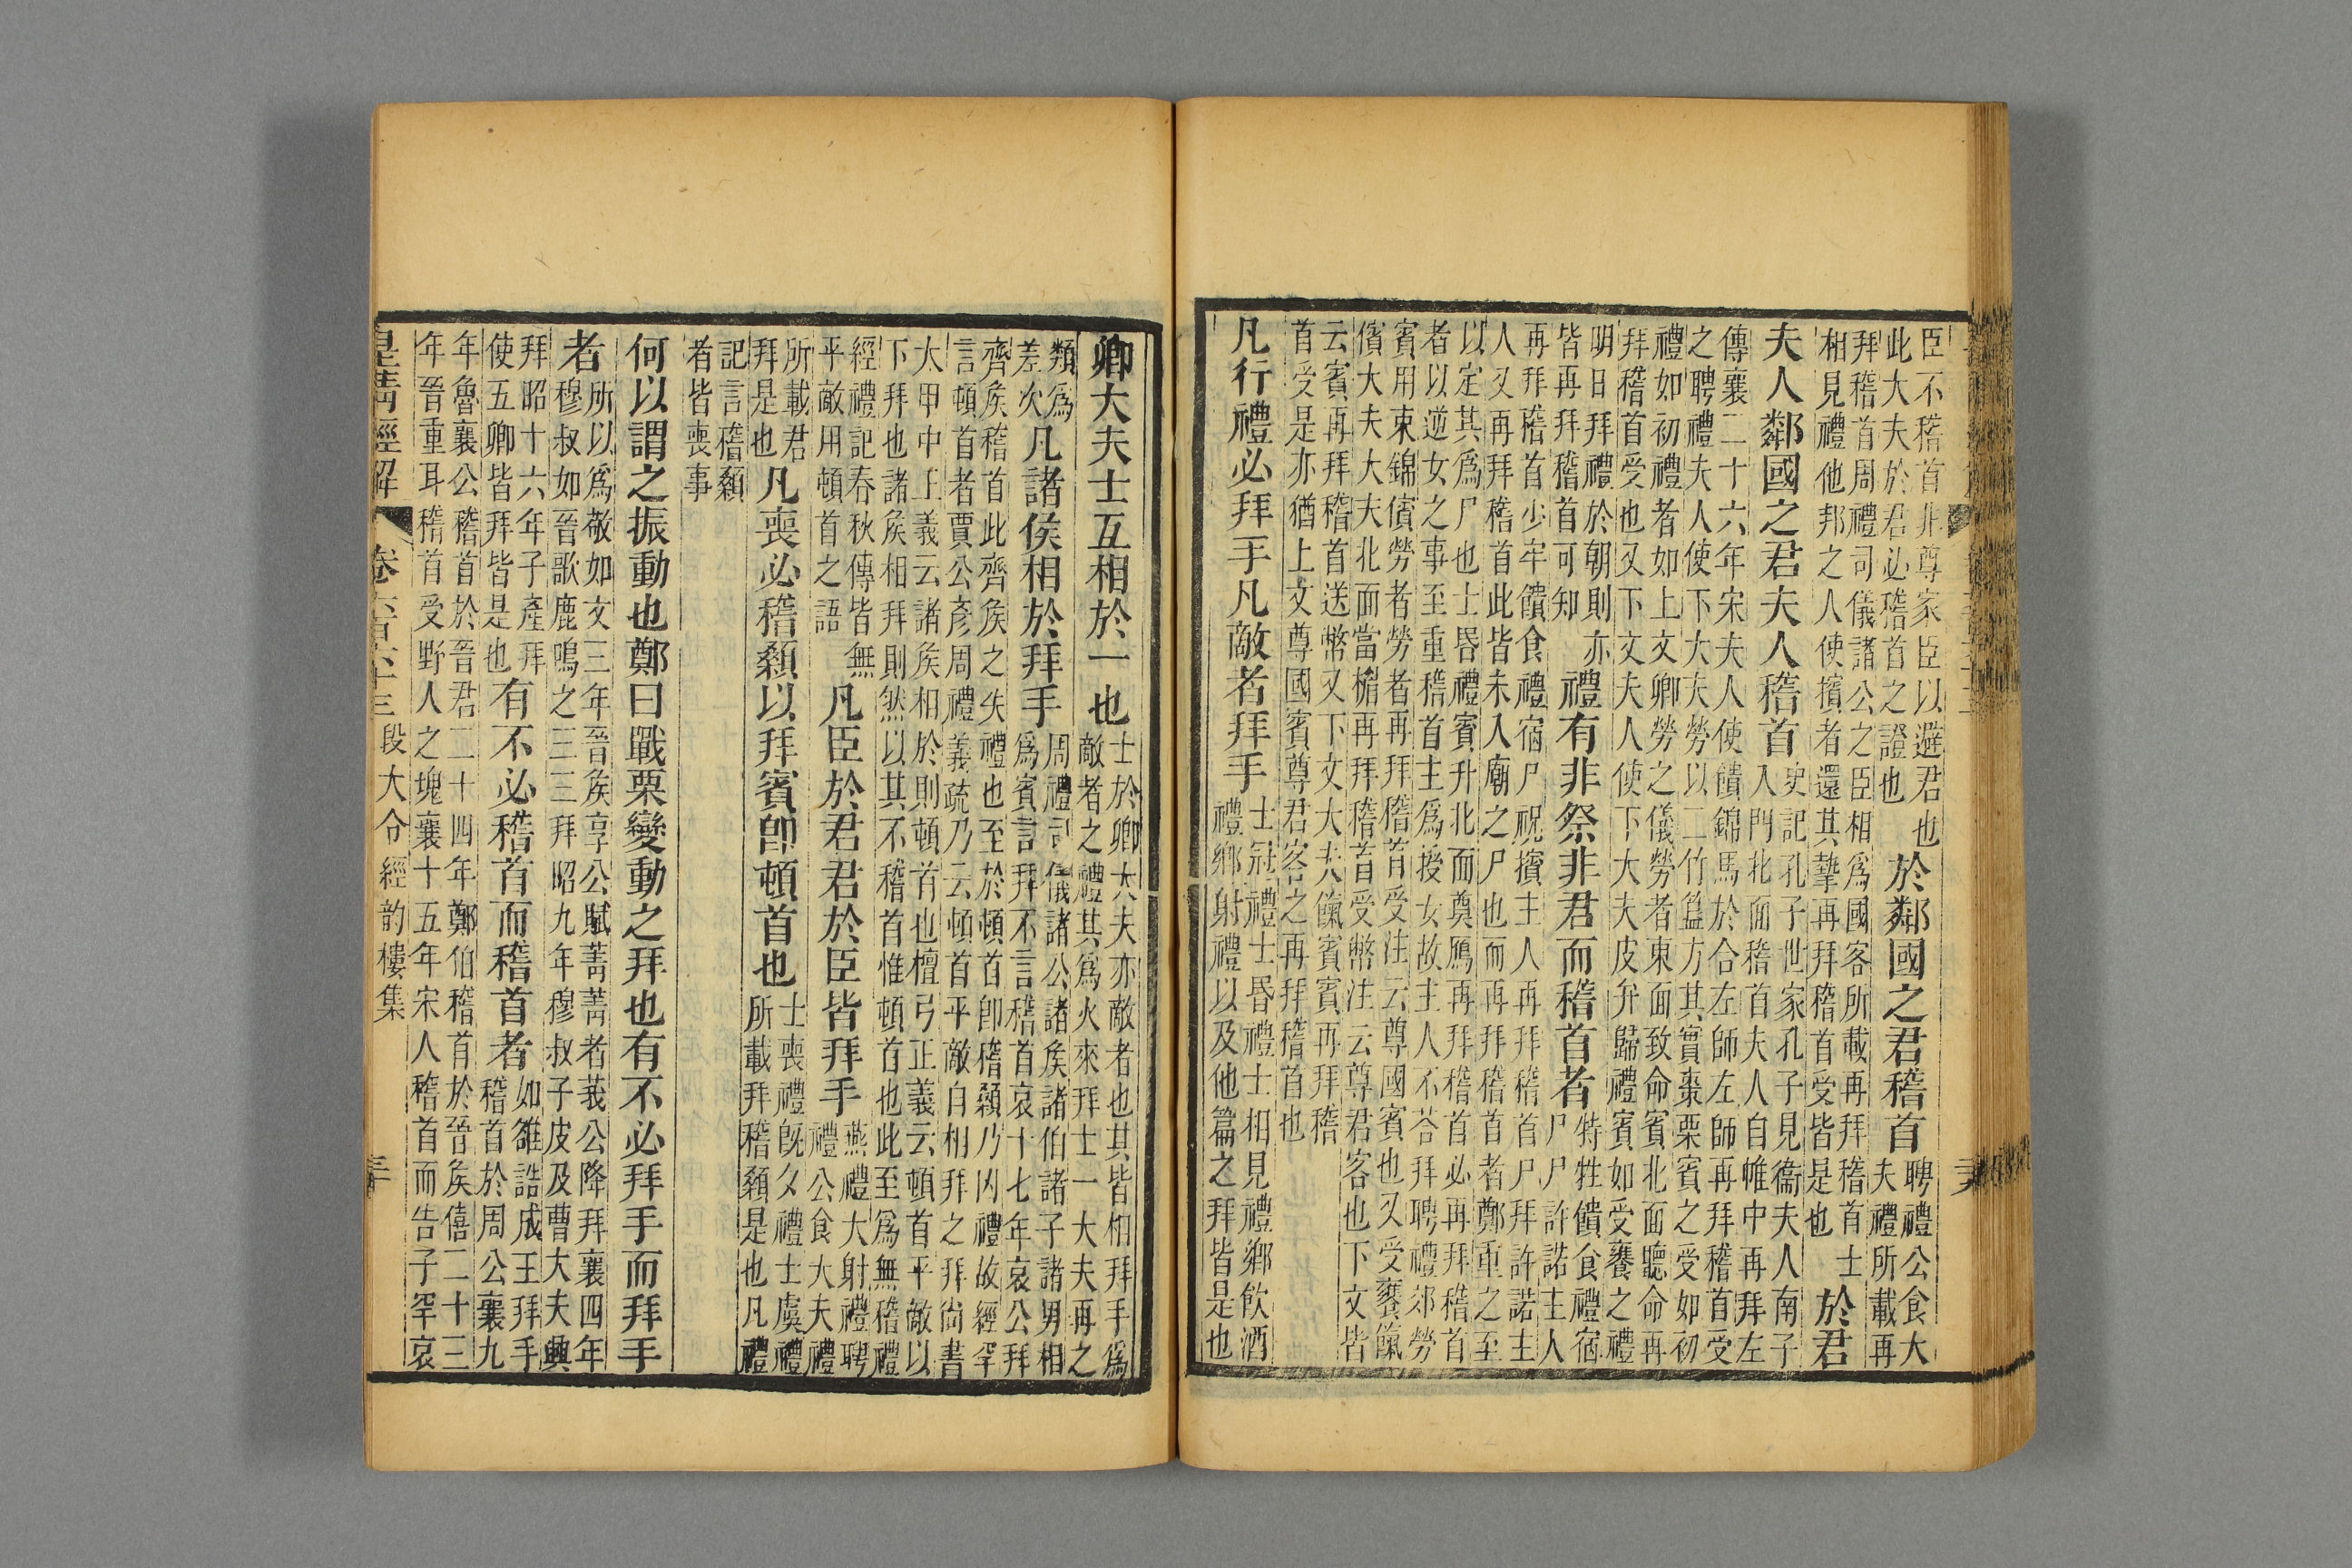 臣不稽首非尊家臣以避君也
此大夫於君必稽首之證也
於鄰國之君稽首
聘禮公食大
夫禮所載再
拜稽首周禮司儀諸公之臣相爲國客所載再拜稽首士
相見禮他邦之人使擯者還其摯再拜稽首受皆是也
於君
夫人鄰國之君夫人稽首
史記孔子世家孔子見衞夫人南子
入門北面稽首夫人自帷中再拜左
傳襄二十六年宋夫人使饋錦馬於合左師左師再拜稽首受
之聘禮夫人使下大夫勞以二竹簋方其實棗栗賓之受如初
禮如初禮者如上文卿勞之儀勞者東面致命賓北面聽命再
拜稽首受也又下文夫人使下大夫皮弁歸禮賓如受饔之禮
明日拜禮於朝則亦
皆再拜稽首可知
禮有非祭非君而稽首者
特牲饋食禮宿
尸尸許諾主人
再拜稽首少牢饋食禮宿尸祝擯主人再拜稽首尸拜許諾主
人又再拜稽首此皆未入廟之尸也而再拜稽首者鄭重之至
以定其爲尸也士昏禮賓升北面奠鴈再拜稽首必再拜稽首
者以逆女之事至重稽首主爲授女故主人不荅拜聘禮郊勞
賓用束錦儐勞者勞者再拜稽首受注云尊國賓也又受饔餼
儐大夫大夫北面當楣再拜稽首受幣注云尊君客也下文皆
云賓再拜稽首送幣又下文大夫餼賓賓再拜稽
首受是亦猶上文尊國賓尊君客之再拜稽首也
凡行禮必拜手凡敵者拜手
士冠禮士昏禮士相見禮鄉飲酒
禮鄉射禮以及他篇之拜皆是也
卿大夫士互相於一也
士於卿大夫亦敵者也其皆相拜手爲
敵者之禮其爲火來拜士一大夫再之
類爲
差次
凡諸侯相於拜手
周禮司儀諸公諸矦諸伯諸子諸男相
爲賓言拜不言稽首哀十七年哀公拜
齊矦稽首此齊矦之失禮也至於頓首卽稽顙乃凶禮故經罕
言頓首者賈公彥周禮義疏乃云頓首平敵自相拜之拜尙書
太甲中正義云諸矦相於則頓首也檀弓正義云頓首平敵以
下拜也諸矦相拜則然以其不稽首惟頓首也此至爲無稽禮
經禮記春秋傳皆無
平敵用頓首之語
凡臣於君君於臣皆拜手
燕禮大射禮聘
禮公食大夫禮
所載君
拜是也
凡喪必稽顙以拜賓卽頓首也
士喪禮旣夕禮士虞禮
所載拜稽顙是也凡禮
記言稽顙
者皆喪事
何以謂之振動也鄭曰戰栗變動之拜也有不必拜手而拜手
者
所以爲敬如文三年晉矦享公賦菁菁者莪公降拜襄四年
穆叔如晉歌鹿鳴之三三拜昭九年穆叔子皮及曹大夫興
拜昭十六年子產拜
使五卿皆拜皆是也
有不必稽首而稽首者
如雒誥成王拜手
稽首於周公襄九
年魯襄公稽首於晉君二十四年鄭伯稽首於晉矦僖二十三
年晉重耳稽首受野人之塊襄十五年宋人稽首而告子罕哀
皇清經解
卷六百六十三
段大令經韵樓集
三十